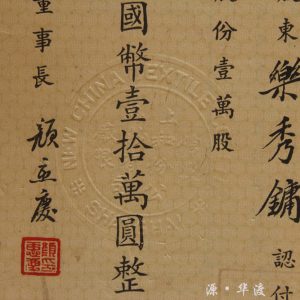 東樂秀鏞認付
份壹萬股
國幣壹拾萬圓整
董事長
NEW CHINA TEXTILE
源·华渡